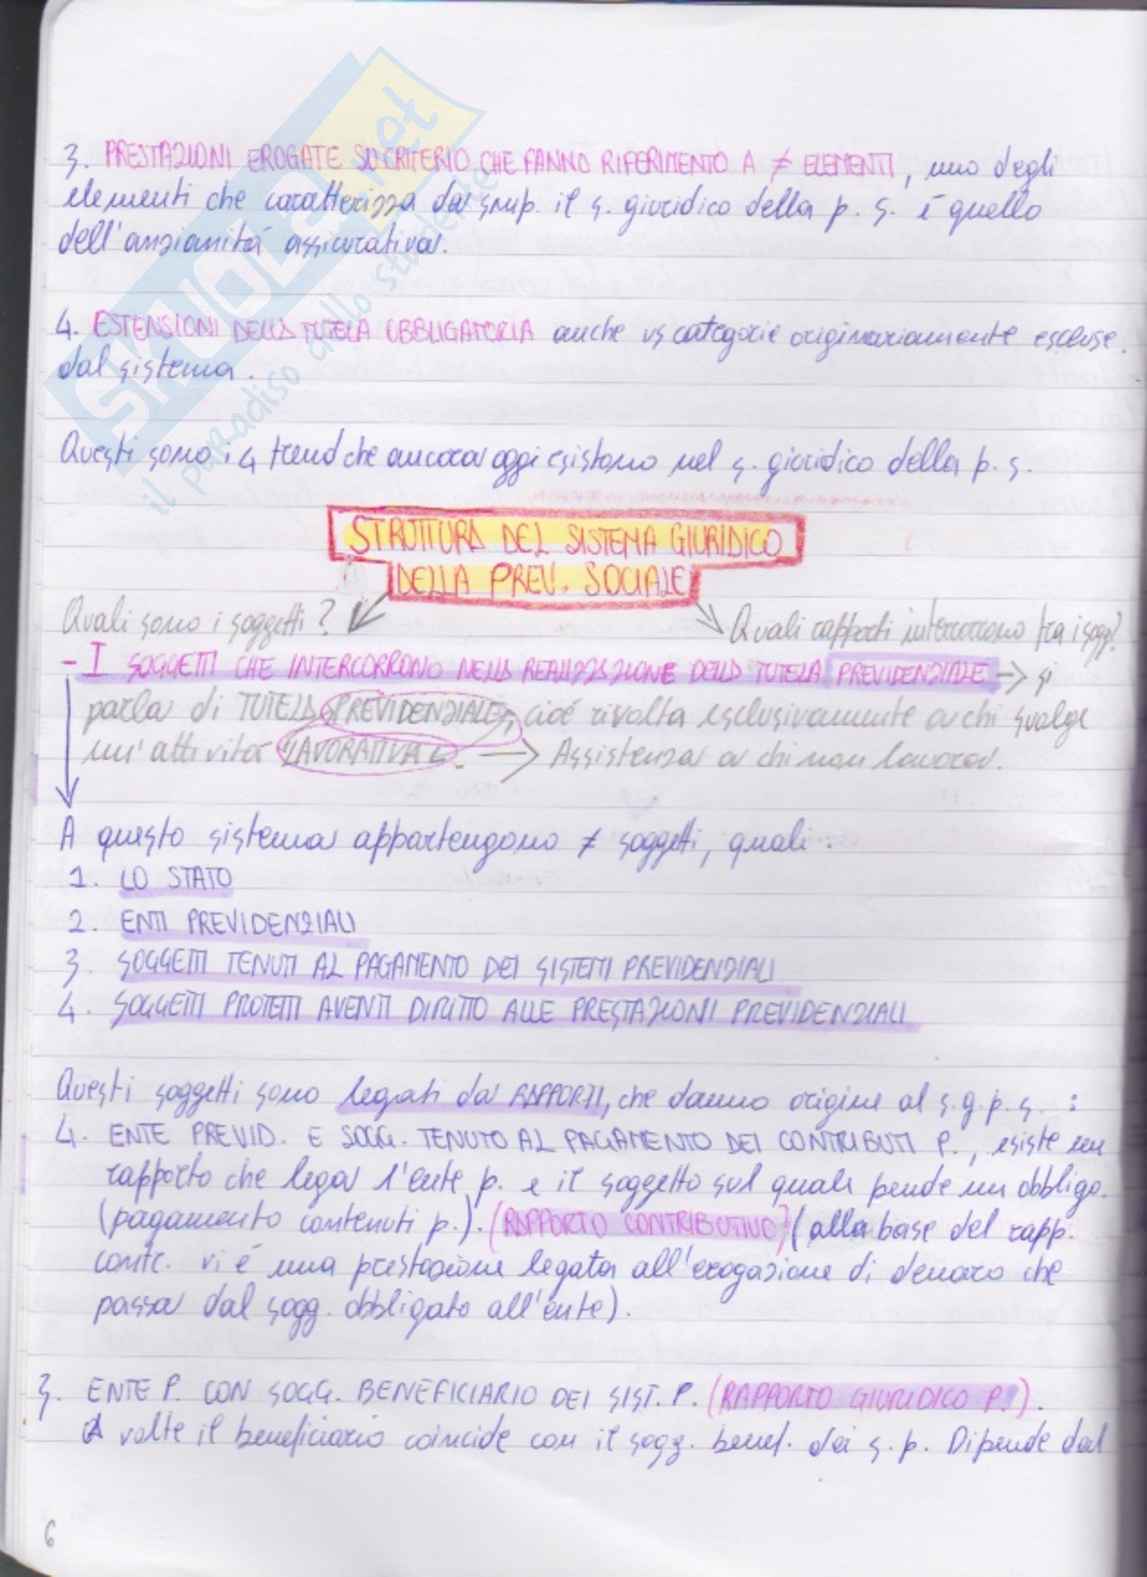 3. PRESTAZIONI EROGATE SU CRITERIO CHE FANNO RIFERIMENTO A ≠ ELEMENTI, uno degli
elementi che caratterizza da sempr. il s. giuridico della p. s. è quello
dell'anzianità assicurativa.
4. ESTENSIONI DELLA TUTELA OBBLIGATORIA anche vs categorie originariamente escluse
dal sistema.
Questi sono i 4 trend che ancora oggi esistono nel s. giuridico della p. s.
STRUTTURA DEL SISTEMA GIURIDICO
DELLA PREV. SOCIALE
Quali sono i soggetti? Quali rapporti intercorrono tra i sogg?
- I SOGGETTI CHE INTERCORRONO NELLA REALIZZAZIONE DELLA TUTELA PREVIDENZIALE → si
parla di TUTELA PREVIDENZIALE, cioè rivolta esclusivamente a chi svolge
un'attività LAVORATIVA. → Assistenza a chi non lavora.
A questo sistema appartengono ≠ soggetti, quali:
1. LO STATO
2. ENTI PREVIDENZIALI
3. SOGGETTI TENUTI AL PAGAMENTO DEI SISTEMI PREVIDENZIALI
4. SOGGETTI PROTETTI AVENTI DIRITTO ALLE PRESTAZIONI PREVIDENZIALI
Questi soggetti sono legati da RAPPORTI, che danno origine al s.g.p.s.:
4. ENTE PREVID. E SOGG. TENUTO AL PAGAMENTO DEI CONTRIBUTI P., esiste un
rapporto che lega l'ente p. e il soggetto sul quale pende un obbligo.
(pagamento contenuti p.). (RAPPORTO CONTRIBUTIVO) (alla base del rapp.
contr. vi è una prestazione legata all'erogazione di denaro che
passa dal sogg. obbligato all'ente).
3. ENTE P. CON SOGG. BENEFICIARIO DEI SIST. P. (RAPPORTO GIURIDICO P.).
A volte il beneficiario coincide con il sogg. benef. dei s. p. Dipende dal
6
SKUOLA.net
il paradiso dello studente